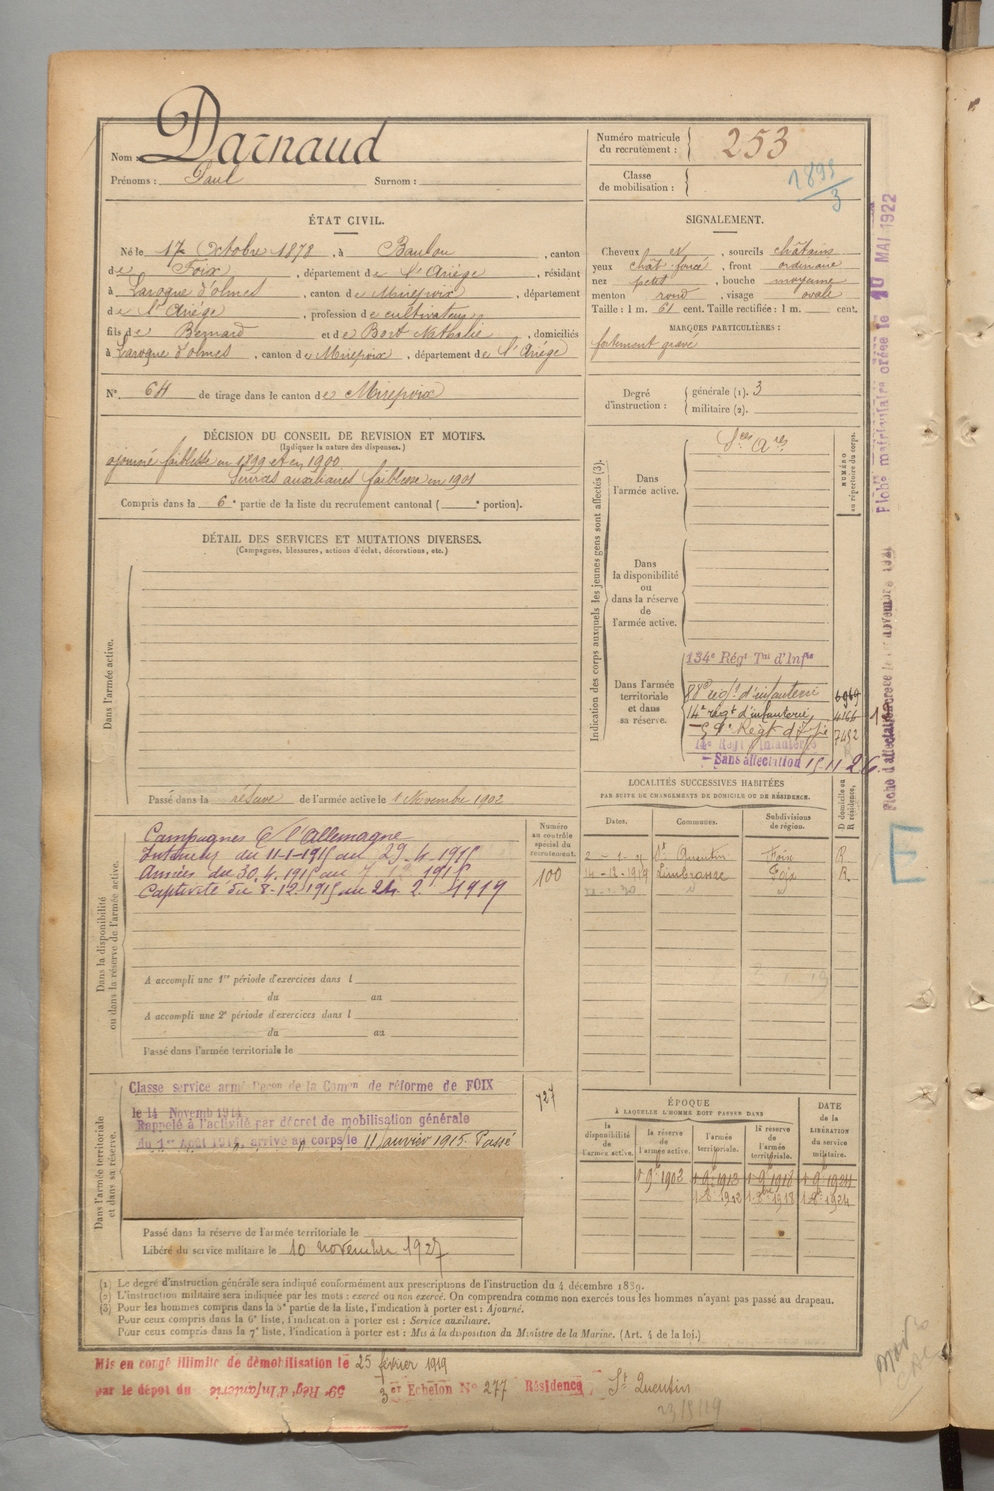 Nom : Darnaud
Prénoms : Paul Surnom :
Numéro matricule du recrutement : 253
Classe de mobilisation : 1899/3
ÉTAT CIVIL.
Né le 17 Octobre 1878, à Baulou, canton
de Foix, département de l'Ariège, résidant
à Laroque d'olmes, canton de Mirepoix, département
de l'Ariège, profession de cultivateur
fils de Bernard et de Bort Nathalie, domiciliés
à Laroque d'olmes, canton de Mirepoix, département de l'Ariège
N° 64 de tirage dans le canton de Mirepoix
SIGNALEMENT.
Cheveux et, sourcils châtains
yeux chât. foncé, front ordinaire
nez petit, bouche moyenne
menton rond, visage ovale
Taille : 1 m. 61 cent. Taille rectifiée : 1 m. cent.
MARQUES PARTICULIÈRES :
fortement gravé
Degré d'instruction : générale (1). 3
militaire (2).
DÉCISION DU CONSEIL DE REVISION ET MOTIFS.
(Indiquer la nature des dispenses.)
ajourné faiblesse en 1899 et en 1900
Services auxiliaires faiblesse en 1901
Compris dans la 6e partie de la liste du recrutement cantonal ( e portion).
DÉTAIL DES SERVICES ET MUTATIONS DIVERSES.
(Campagnes, blessures, actions d'éclat, décorations, etc.)
Dans l'armée active.
Passé dans la réserve de l'armée active le 1 Novembre 1902
Indication des corps auxquels les jeunes gens sont affectés (3).
NUMÉRO au répertoire du corps.
Dans l'armée active.
Sces Ares
Dans la disponibilité ou dans la réserve de l'armée active.
Dans l'armée territoriale et dans sa réserve.
134e Régt Tal d'Infie
88e régt d'infanterie 6969
14e régt d'infanterie 4166
59e Régt d'Infie 7492
14e Régt Infanterie
Sans affectation 15-11-26.
Dans la disponibilité ou dans la réserve de l'armée active.
Campagnes C. l'Allemagne
Intérieur du 11-1-1915 au 29.4.1915
Armées du 30.4.1915 au 7 1915
Captivité du 8-12.1915 au 24 2 1919
Numéro au contrôle spécial du recrutement.
100
A accompli une 1re période d'exercices dans l
du au
A accompli une 2e période d'exercices dans l
du au
Passé dans l'armée territoriale le
LOCALITÉS SUCCESSIVES HABITÉES
PAR SUITE DE CHANGEMENTS DE DOMICILE OU DE RÉSIDENCE.
Dates. Communes. Subdivisions de région. D domicile ou R résidence.
St Quentin Foix R
14-12-1919 Limbrassac Foix R
Dans l'armée territoriale et dans sa réserve.
Classé service armé Décon de la Comon de réforme de FOIX
le 14 Novemb 1914
Rappelé à l'activité par décret de mobilisation générale
du 1er Août 1914, arrivé au corps le 11 Janvier 1915. Passé
727
Passé dans la réserve de l'armée territoriale le
Libéré du service militaire le 10 novembre 1927
ÉPOQUE
À LAQUELLE L'HOMME DOIT PASSER DANS
la disponibilité de l'armée active. la réserve de l'armée active. l'armée territoriale. la réserve de l'armée territoriale. DATE de la LIBÉRATION du service militaire.
1 9bre 1902 1 9bre 1912 1 9bre 1918 1 9bre 1924
1912 1918 1924
(1) Le degré d'instruction générale sera indiqué conformément aux prescriptions de l'instruction du 4 décembre 1889.
(2) L'instruction militaire sera indiquée par les mots : exercé ou non exercé. On comprendra comme non exercés tous les hommes n'ayant pas passé au drapeau.
(3) Pour les hommes compris dans la 5e partie de la liste, l'indication à porter est : Ajourné.
Pour ceux compris dans la 6e liste, l'indication à porter est : Service auxiliaire.
Pour ceux compris dans la 7e liste, l'indication à porter est : Mis à la disposition du Ministre de la Marine. (Art. 4 de la loi.)
Mis en congé illimité de démobilisation le 25 février 1919
par le dépôt du 59e Rég. d'Infanterie 3e Echelon N° 277 Résidence St Quentin
Fiche matriculaire créée le 10 MAI 1922
E